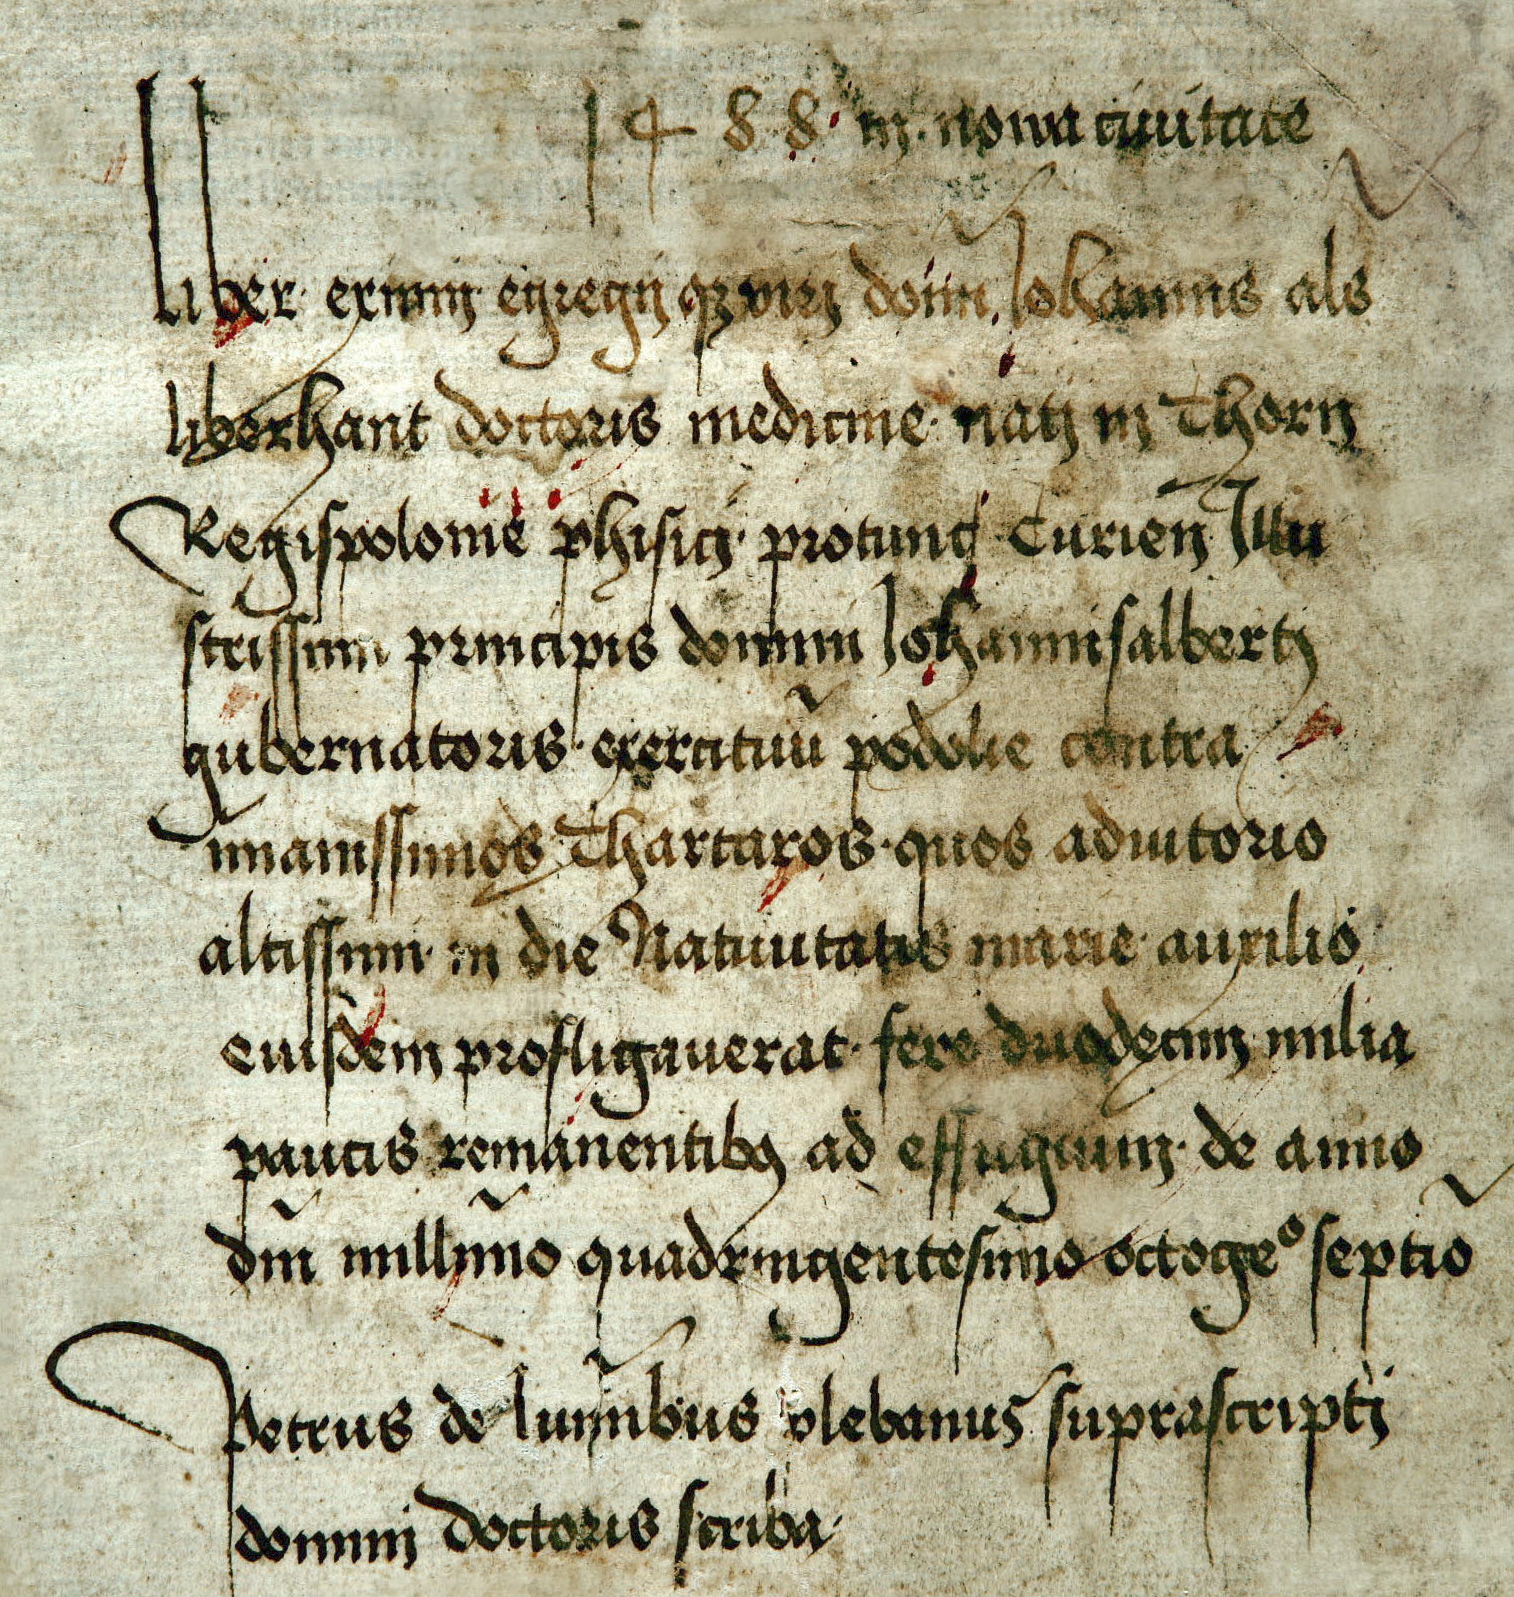 1488 in nowa ciuitate
Liber eximij egregij qz virj domī Johannis als
liberhant doctoris medicine natj in Thorn
Regispolonie phisicj protunc Curień Illu
strissimi principis domini Johannisalbertj
gubernatoris exercituū podolie contra
inanissimos Thartaros quos adiutorio
altissimi in die Natiuitatis marie auxilio
eiusdem profligauerat fere duodecim milia
paucis remanentibꝯ ad effugium de anno
dm̄ millīmo quadringentesimo octogeº septīo
Petrus de lumībus plebanus suprascriptj
dominj doctoris scriba